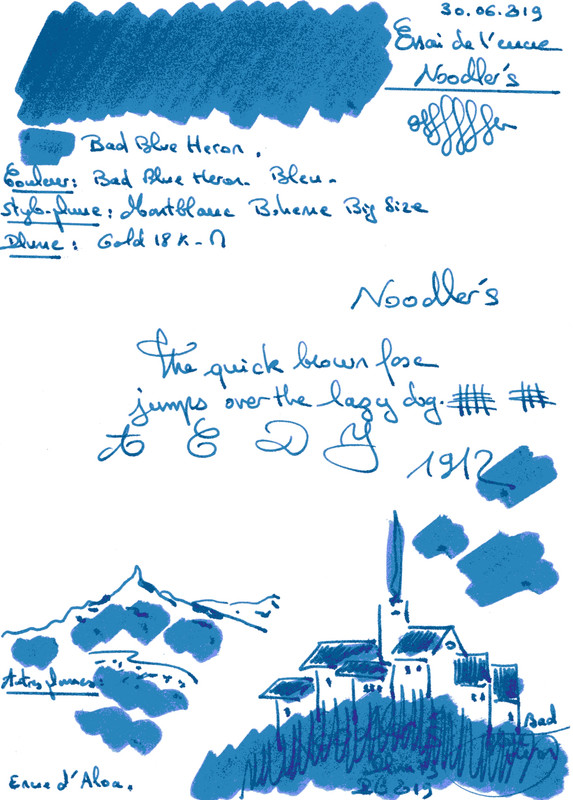 30.06.219
Essai de l'encre
Noodler's
Bad Blue Heron.
Couleur: Bad Blue Heron. Bleu.
Stylo-plume: Montblanc Boheme Big Size
Plume: Gold 18 K - M
Noodler's
The quick brown fox
jumps over the lazy dog.
A E D Y
1912
Autres plumes:
Bad
Blue
Heron